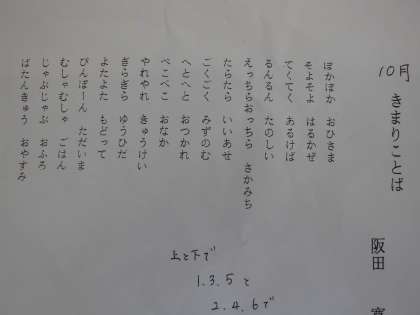 10月
きまりことば
阪田
ぽかぽか おひさま
そよそよ はるかぜ
てくてく あるけば
るんるん たのしい
えっちらおっちら さかみち
たらたら いいあせ
ごくごく みずのむ
へとへと おつかれ
ぺこぺこ おなか
やれやれ きゅうけい
ぎらぎら ゆうひだ
よたよた もどって
ぴんぽーん ただいま
むしゃむしゃ ごはん
じゃぶじゃぶ おふろ
ばたんきゅう おやすみ
上と下で
1.3.5と
2.4.6で